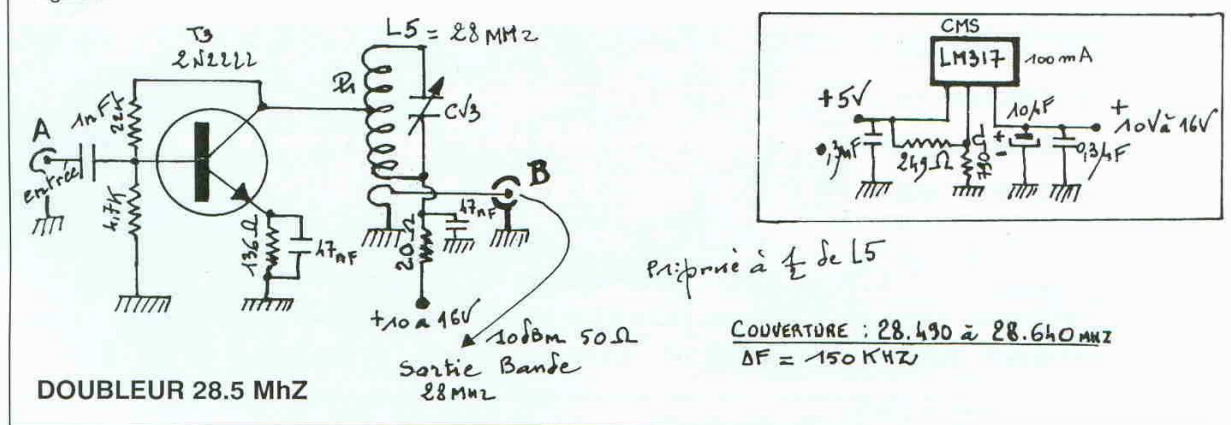 T3
2N2222
L5 = 28 MHz
A
1nF
22K
entrée
4.7K
136Ω
47nF
P1
CV3
B
47nF
20Ω
+10 a 16V
10dBm 50Ω
Sortie Bande
28MHz
DOUBLEUR 28.5 MhZ
CMS
LM317
100mA
+5V
249Ω
790Ω
10µF
+
-
+
10V à 16V
P1: prise à 1/2 de L5
COUVERTURE : 28.490 à 28.640 MHZ
ΔF = 150 KHZ